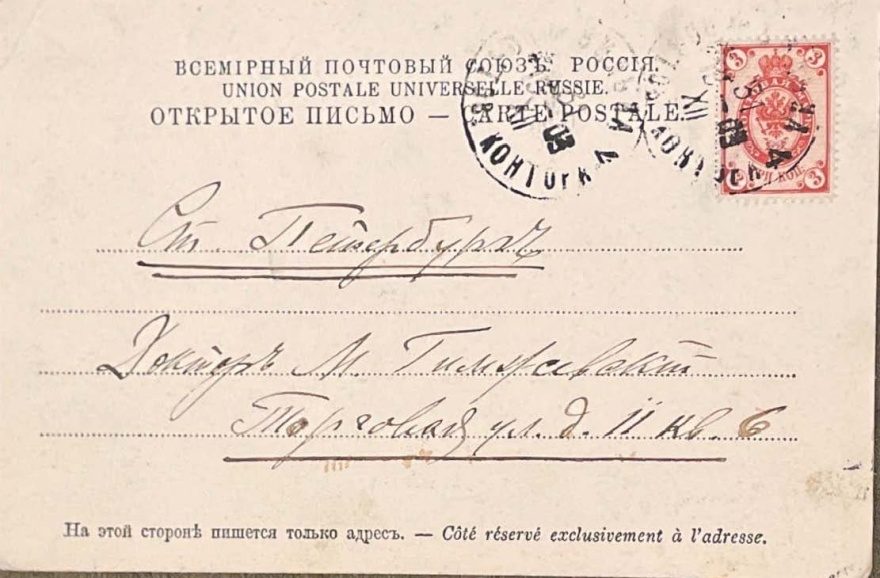 ВСЕМІРНЫЙ ПОЧТОВЫЙ СОЮЗЪ. РОССІЯ.
UNION POSTALE UNIVERSELLE RUSSIE.
ОТКРЫТОЕ ПИСЬМО — CARTE POSTALE.
КОНТОРА 4
XII
03
3 3
3 3
31
XII
03
4
Ст. Петербургъ
Докторъ М.
Торговая ул. д. 11 кв. 6
На этой сторонѣ пишется только адресъ. — Côté réservé exclusivement à l'adresse.